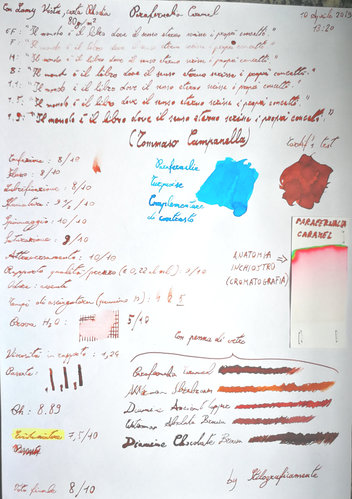 Con Lamy Vista, carta Clairefontaine Parafernalia Caramel 10 agosto 2019
80g/m² 13:20
EF: "Il mondo è il libro dove il senno eterno scrisse i propri concetti."
F: "Il mondo è il libro dove il senno eterno scrisse i propri concetti."
M: "Il mondo è il libro dove il senno eterno scrisse i propri concetti."
B: "Il mondo è il libro dove il senno eterno scrisse i propri concetti."
1.1: "Il mondo è il libro dove il senno eterno scrisse i propri concetti."
1.5: "Il mondo è il libro dove il senno eterno scrisse i propri concetti."
1.9: "Il mondo è il libro dove il senno eterno scrisse i propri concetti."
(Tommaso Campanella)
Confezione: 8/10
Flusso: 9/10
Lubrificazione: 8/10
Sfumatura: /10
Spiumaggio: 10/10
Saturazione: 9/10
Attraversamento: 10/10
Rapporto qualità/prezzo (€ 0,22 al ml) /10
Odore: assente
Tempi di asciugatura (pennino M): 5
Prova H₂O: 5/10
Viscosità in rapporto: 1,24
Passate:
Ph: 8.89
7,5/10
Voto finale 8/10
Parafernalia
Turquoise
Complementare
di contrasto
Card's test
ANATOMIA
INCHIOSTRO
(CROMATOGRAFIA)
PARAFERNALIA
CARAMEL
Con penna di vetro
Parafernalia Caramel
Diamine Ancient Copper
Waterman Absolute Brown
Diamine Chocolate Brown
by Kaligraficamente